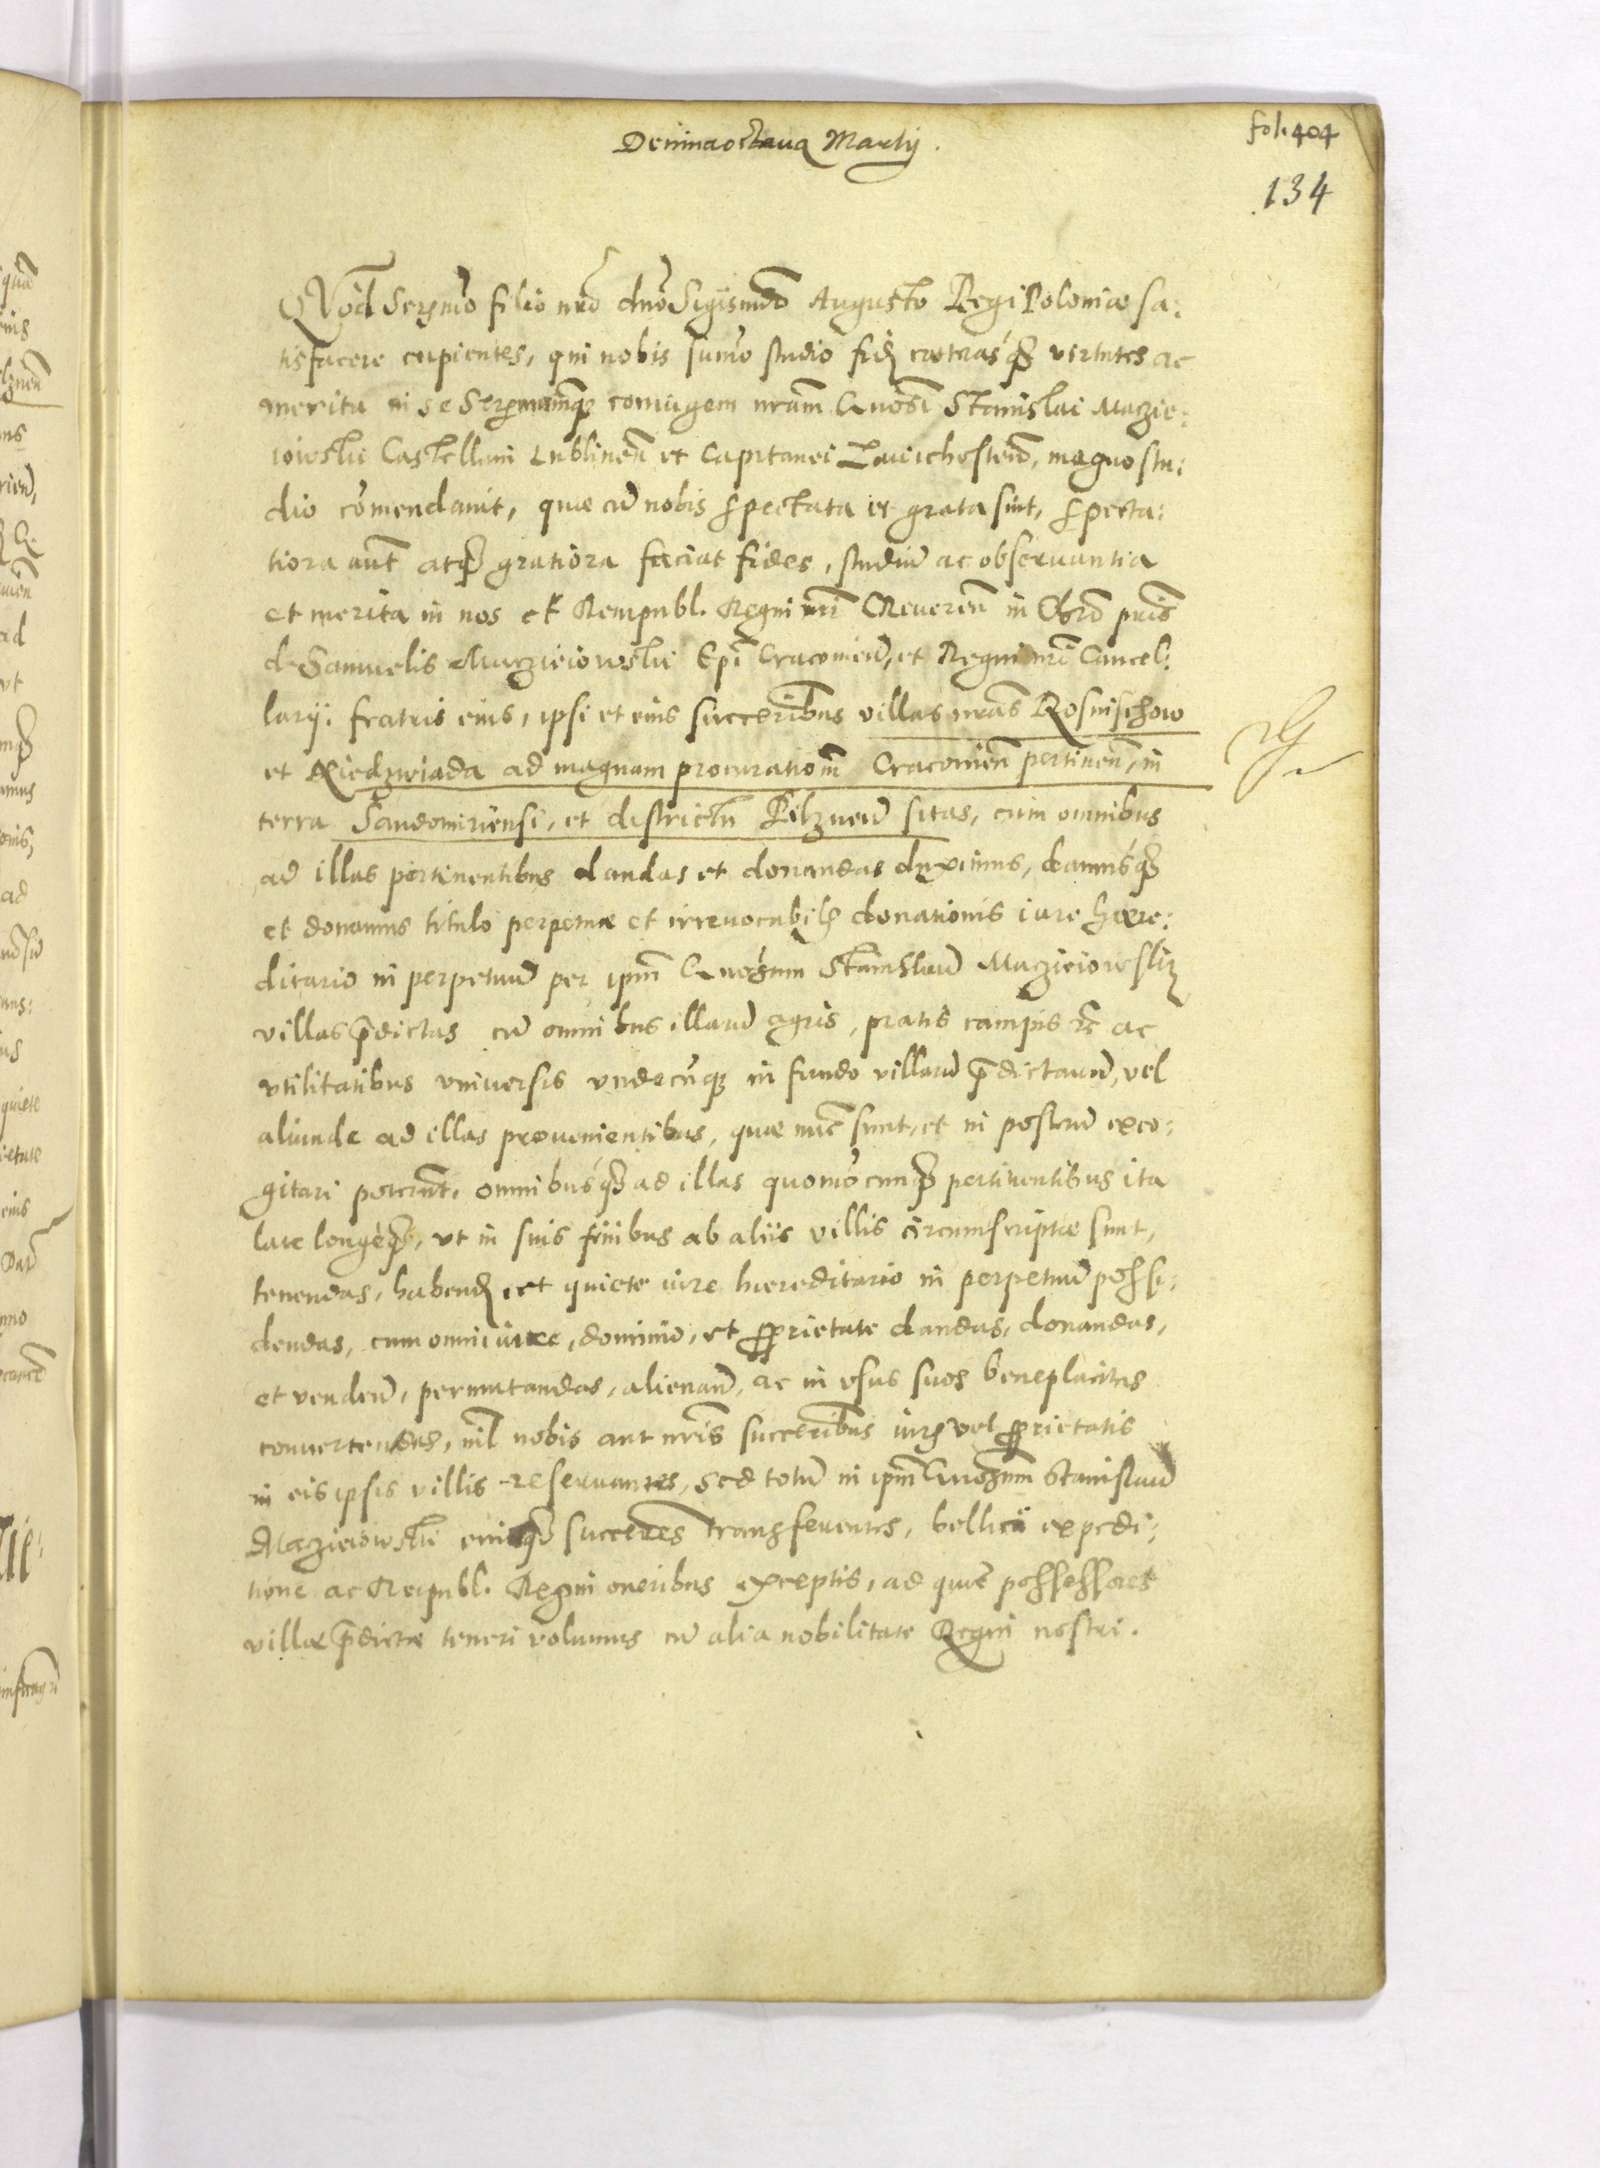 Decimaoctaua Martij.
fol. 404
134
QVod Sermo filio nro dno Sigismdo Augusto Regi Poloniae sa:
tisfacere cupientes, qui nobis sumo studio fid caeteras q virtutes ac
merita in se Sermamq coniugem nram Gnosi Stanislai Maczie:
iowski Castellani Lublinen et Capitanei Zawichosten, magno stu:
dio comendauit, quae cu nobis spectata et grata sint, specta:
tiora aut atq gratiora faciat fides, studiu ac obseruantia
et merita in nos et Rempubl. Regni nri Reueren in Chro pris
d. Samuelis Maczieiowski Epi Cracouien, et Regni nri Cancel:
larij. fratris eius, ipsi et eius succeribus villas nras Rosnischow
et Niedzwiada ad magnam procurationem Cracouien pertinen, in
terra Sandomiriensi, et districtu Pilznen sitas, cum omnibus
ad illas pertinentibus dandas et donandas duximus, damus q
et donamus titulo perpetuae et irreuocabilis donationis iure haere:
ditario in perpetuu per ipm Gnosum Stanislau Maczieiowski
villas pdictas cu omnibus illaru agris, pratis campis etc ac
vtilitatibus vniuersis vndecuq in fundo villaru pdictaru, vel
aliunde ad illas prouenientibus, quae nuc sunt, et in posteru exco:
gitari poterunt, omnibus q ad illas quomocunq pertinentibus ita
late longe q, vt in suis finibus ab aliis villis circumscriptae sunt,
tenendas, habend et quiete iure haereditario in perpetuu possi:
dendas, cum omni iure, dominio, et proprietate dandas, donandas,
et venden, permutandas, alienan, ac in vsus suos beneplacitos
conuertendas, nil nobis aut nris succeribus iuris vel proprietatis
in eis ipsis villis reseruantes, sed totu in ipm Gnosum Stanislau
Maczieiowski eiusq succeres transferentes, bellica expedi:
tione ac Reipubl. Regni oneribus exceptis, ad quae possessores
villae pdictae teneri volumus cu alia nobilitate Regni nostri.